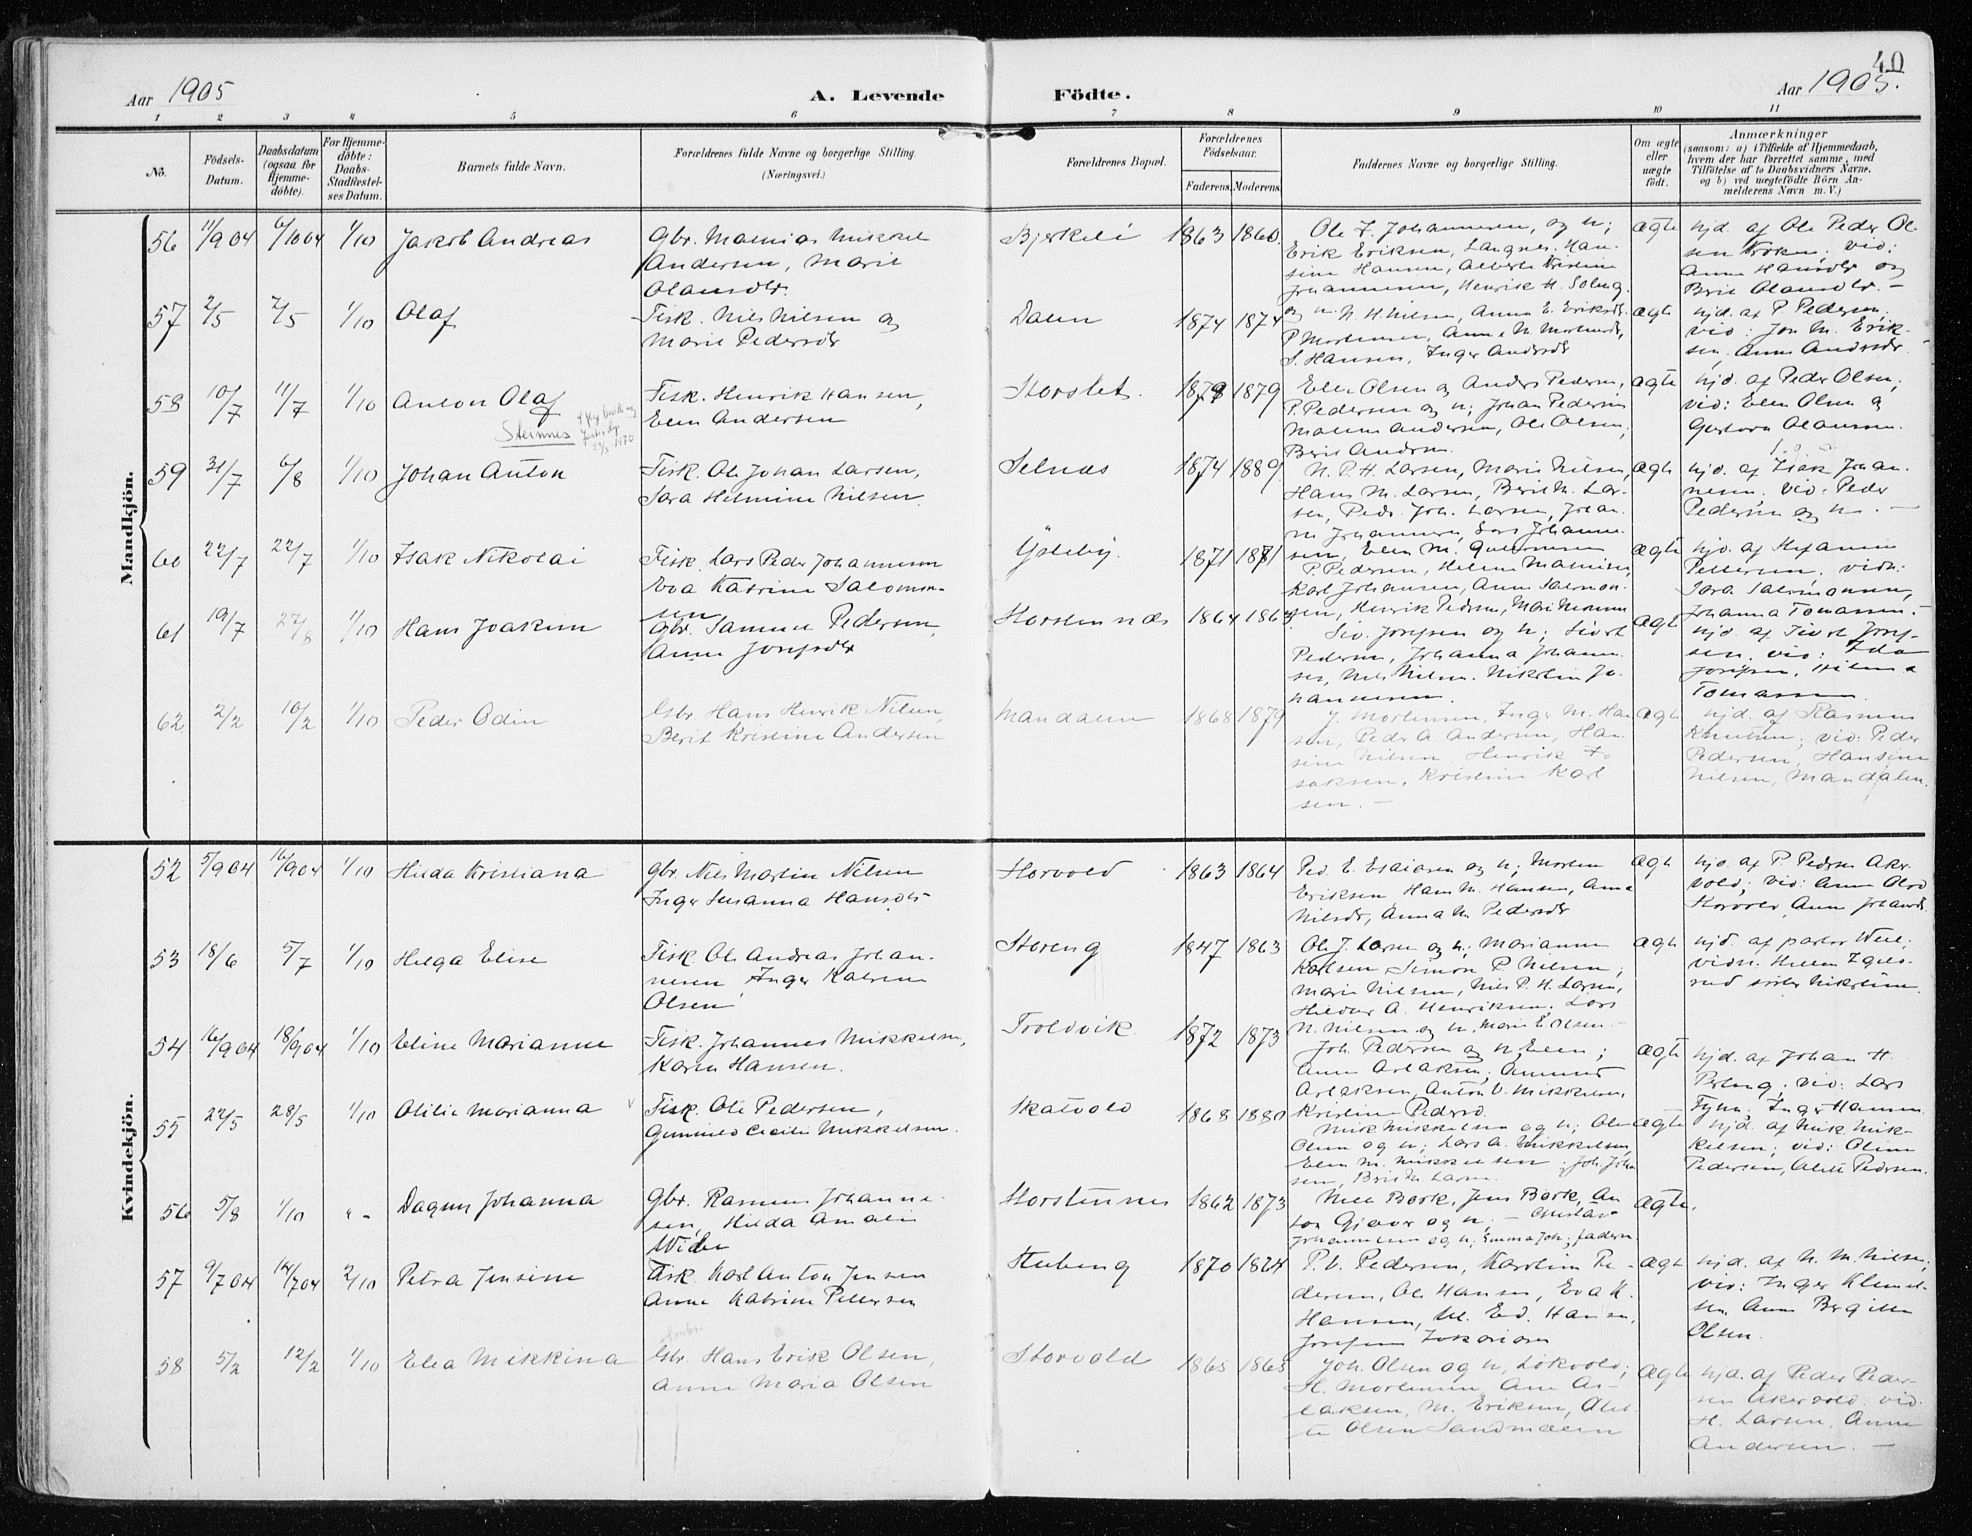 40
Aar 1905 A. Levende Födte. Aar 1905.
1 2 3 4 5 6 7 8 9 10 11
No. Födsels-Datum. Daabsdatum (ogsaa for Hjemmedöbte). For Hjemmedöbte: Daabs-Stadfæstelses Datum. Barnets fulde Navn. Forældrenes fulde Navne og borgerlige Stilling. (Næringsvei.) Forældrenes Bopæl. Forældrenes Födselsaar. Faderens. Moderens. Faddernes Navne og borgerlige Stilling. Om ægte eller uægte födt. Anmærkninger (saasom: a) i Tilfælde af Hjemmedaab, hvem der har forrettet samme, med Tilföielse af to Daabsvidners Navne, og b) ved uægtefödte Börn Anmelderens Navn m. V.)
Mandkjön.
56 11/9 04 6/10 04 1/10 Jakob Andreas Gbr. Mathias Mikkel Andersen, Marit Olausdtr. Bjerkeli 1863 1860. Ole J. Johannesen, og h; Erik Eriksen, Langnes, Hansine Hansen, Alberte Kristine Johannesen, Henrik H. Soleng. ægte hjd. af Ole Peder Olsen Kroken, vid: Anne Hansdtr og Berit Olausdtr. –
57 2/5 7/5 1/10 Olaf Fisk. Nils Nilsen og Marie Pedersdtr Dalen 1874 1874 og h. N. H. Nilsen, Anna E. Eriksdtr. P. Mortensen, Anne N. Mortensdtr, S. Hansen, Inger Andersdtr ægte hjd. af P. Pedersen; vid: Jon M. Eriksen, Anne Andersdtr.
58 10/7 11/7 1/10 Anton Olaf Steinnes Fisk. Henrik Hansen, Elen Andersen Storslet. 1879 1879 Elen Olsen og Anders Pedersen, P. Pedersen og h; Johan Pedersen Malene Andersen, Ole Olsen, Berit Andersen ægte hjd. af Peder Olsen; vid: Elen Olsen og Gustava Olaussen.
59 31/7 6/8 1/10 Johan Anton Fisk. Ole Johan Larsen, Sara Helmine Nilsen. Selnæs 1874 1889. N. P. H. Larsen, Marie Nilsen, Hans M. Larsen, Berit N. Larsen, Peder Joh. Larsen, ægte hjd. af Isak Johannesen, vid: Peder Pedersen og h. –
60 22/7 22/7 1/10 Isak Nikolai Fisk Lars Peder Johannesen Eva Katrine Salomonsen 1871 1871 P. Pedersen, Helene Mathisen, Karl Johansen, Anne Salomonsen, Henrik Pedersen, ægte hjd. af Stefanius Pettersen. vidn: Sara Salomonsen, Johanna Tomassen. –
61 19/7 27/8 1/10 Hans Joakim Gbr. Samuel Pedersen, Anne Josefsdtr Storstennæs 1864 Siv. Josefsen og h; Sivert Pedersen, Johanna Johannesen, Nils Nilsen. Nikolin Johannesen ægte hjd. af Sivert Josefsen. vid: Ida Josefsen, Hilma Tomassen.
62 2/2 10/2 1/10 Peder Odin Gbr Hans Henrik Nilsen, Berit Kristine Andersen Mandalen 1868 1879 J. Mortensen, Inger M. Hansen, Peder A. Andersen, Hansine Nilsen, Henrik Isaksen, Kristine Karlsen. – ægte hjd. af Rasmus Knutsen; vid: Peder Pedersen, Hansine Nilsen, Mandalen.
Kvindekjön.
52 5/9 04 16/9 04 1/10 Hilda Kristiana Gbr. Nils Martin Nilsen Inger Susanna Hansdtr Storvold 1863 1864 Ped. E. Esaiasen og h; Morten Eriksen Hans M. Hansen, Anna Nilsdtr, Anna M. Pedersdtr ægte hjd. af P. Pedersen Akervold; vid: Anne Olsd Storvold, Anne Johansdtr
53 18/6 5/7 1/10 Helga Elise Fisk Ole Andreas Johannesen Inger Katrine Olsen Storeng 1847 1863 Ole J. Larsen og h; Marianne Karlsen Simon P. Nilsen; Marie Nilsen, Nils P. H. Larsen, Hildur A. Henriksen. Lars N. Nilsen og h, Marie E. Olsen. – ægte hjd. af pastor Weel; vidn. Helene søster Nikoline.
54 16/9 04 18/9 04 1/10 Eline Marianne Fisk. Johannes Mikkelsen, Karen Hansen. Troldvik 1872 1873 Joh. Pedersen og h, Elen; Anne Aslaksen; Amund Aslaksen, Anton O. Mikkelsen, Kristine Pedersd. ægte hjd. af Johan H. vid: Lars Fynn, Inger Hansen
55 22/5 28/5 1/10 Otilie Marianna Fisk. Ole Pedersen, Gunnild Cecilie Mikkelsen. Skatvold 1868 1880 Mik Mikkelsen og h; Ole Olsen og h; Lars A. Mikkelsen, Elen M. Mikkelsen; Joh. Johansen, Berit N. Larsen ægte hjd. af Mik. Mikkelsen; vid: Oline Pedersen, Alette Pedersen.
56 5/8 1/10 „ – Dagny Johanna Gbr. Rasmus Johannesen, Hilda Amalie Storstennes 1862 1873 Nella Bærk, Jens Bærk, Anton Giæver og h; – Gustav Johannesen og h; Emma Joh; faderen. ægte.
57 9/7 04 14/7 04 2/10 Petra Jensine Fisk. Karl Anton Jensen Anne Katrine Pettersen Stubeng 1870 1864 P. O. Pedersen, Karoline Pedersen, Ole Hansen, Eva K. Hansen, Ed. Hansen, Josefine Zakariasen ægte hjd. af N. M. Nilsen, vid: Inger Klemetsen Anne Bergitte Olsen.
58 5/2 12/2 1/10 Elea Mikkina Gbr. Hans Erik Olsen, Anne Maria Olsen Storvold 1865 1865 Joh. Olsen og h, Løkvold; H. Mortensen, Ane Aslaksen, M. Eriksen, Alette Olsen Sandmælen ægte hjd. af Peder Pedersen Akervold. vid. H. Larsen, Anne Andersen. –